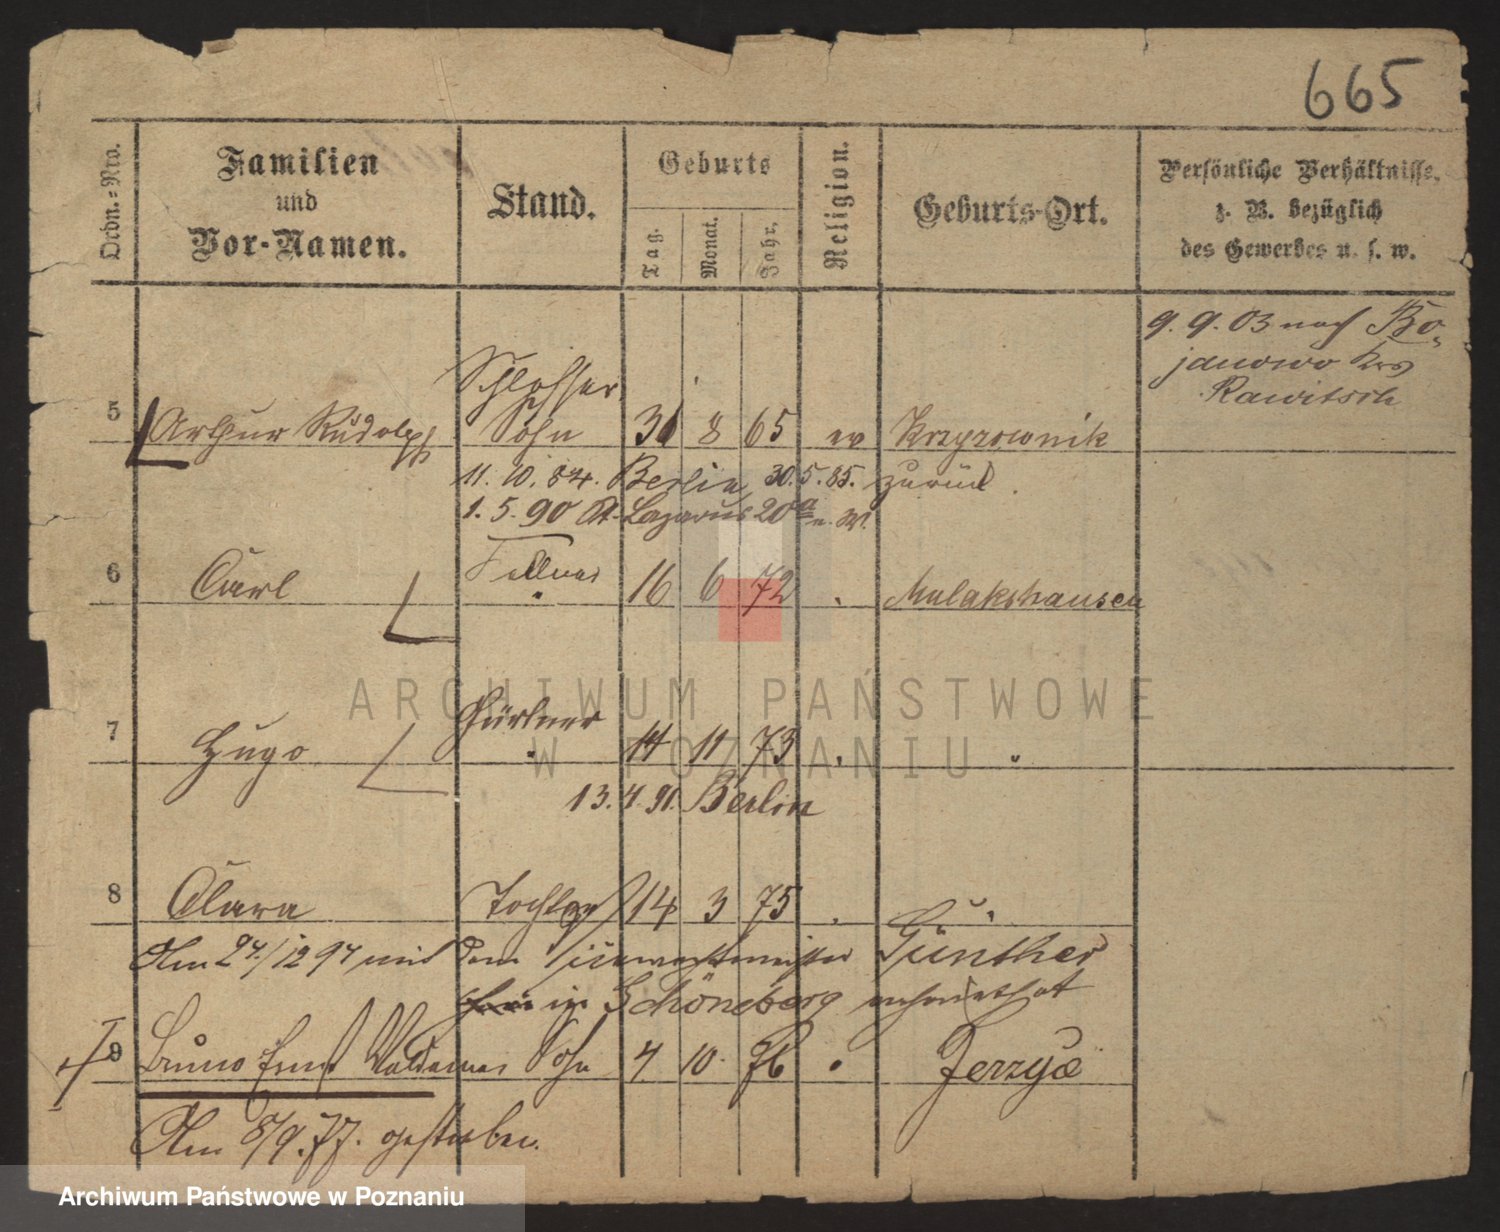 665
Ordn.-Nro.
Familien
und
Vor-Namen.
Stand.
Geburts
Tag.
Monat.
Jahr.
Religion.
Geburts-Ort.
Persönliche Verhältnisse,
z. B. bezüglich
des Gewerbes u. s. w.
9. 9. 03 nach Bo-
janowo Krs
Rawitsch
Schlosser
5 Arthur Rudolph Sohn 31 8 65 ev Krzyzownik
11. 10. 84. Berlin 30. 5. 85. zurück.
1. 5. 90 St. Lazarus 20a
6 Carl Kellner " 16 6 72 " Malakshausen
Gärtner
7 Hugo " 14 11 73 " "
13. 4. 91. Berlin
8 Clara Tochter 14 3 75 " "
Am 27/12 97 mit dem Vicewachtmeister Günther
in Schöneberg verheirathet
9 Bruno Ernst Waldemar Sohn 4 10 76 " Jerzyce
Am 8/9. 77. gestorben.
ARCHIWUM PAŃSTWOWE
W POZNANIU
Archiwum Państwowe w Poznaniu